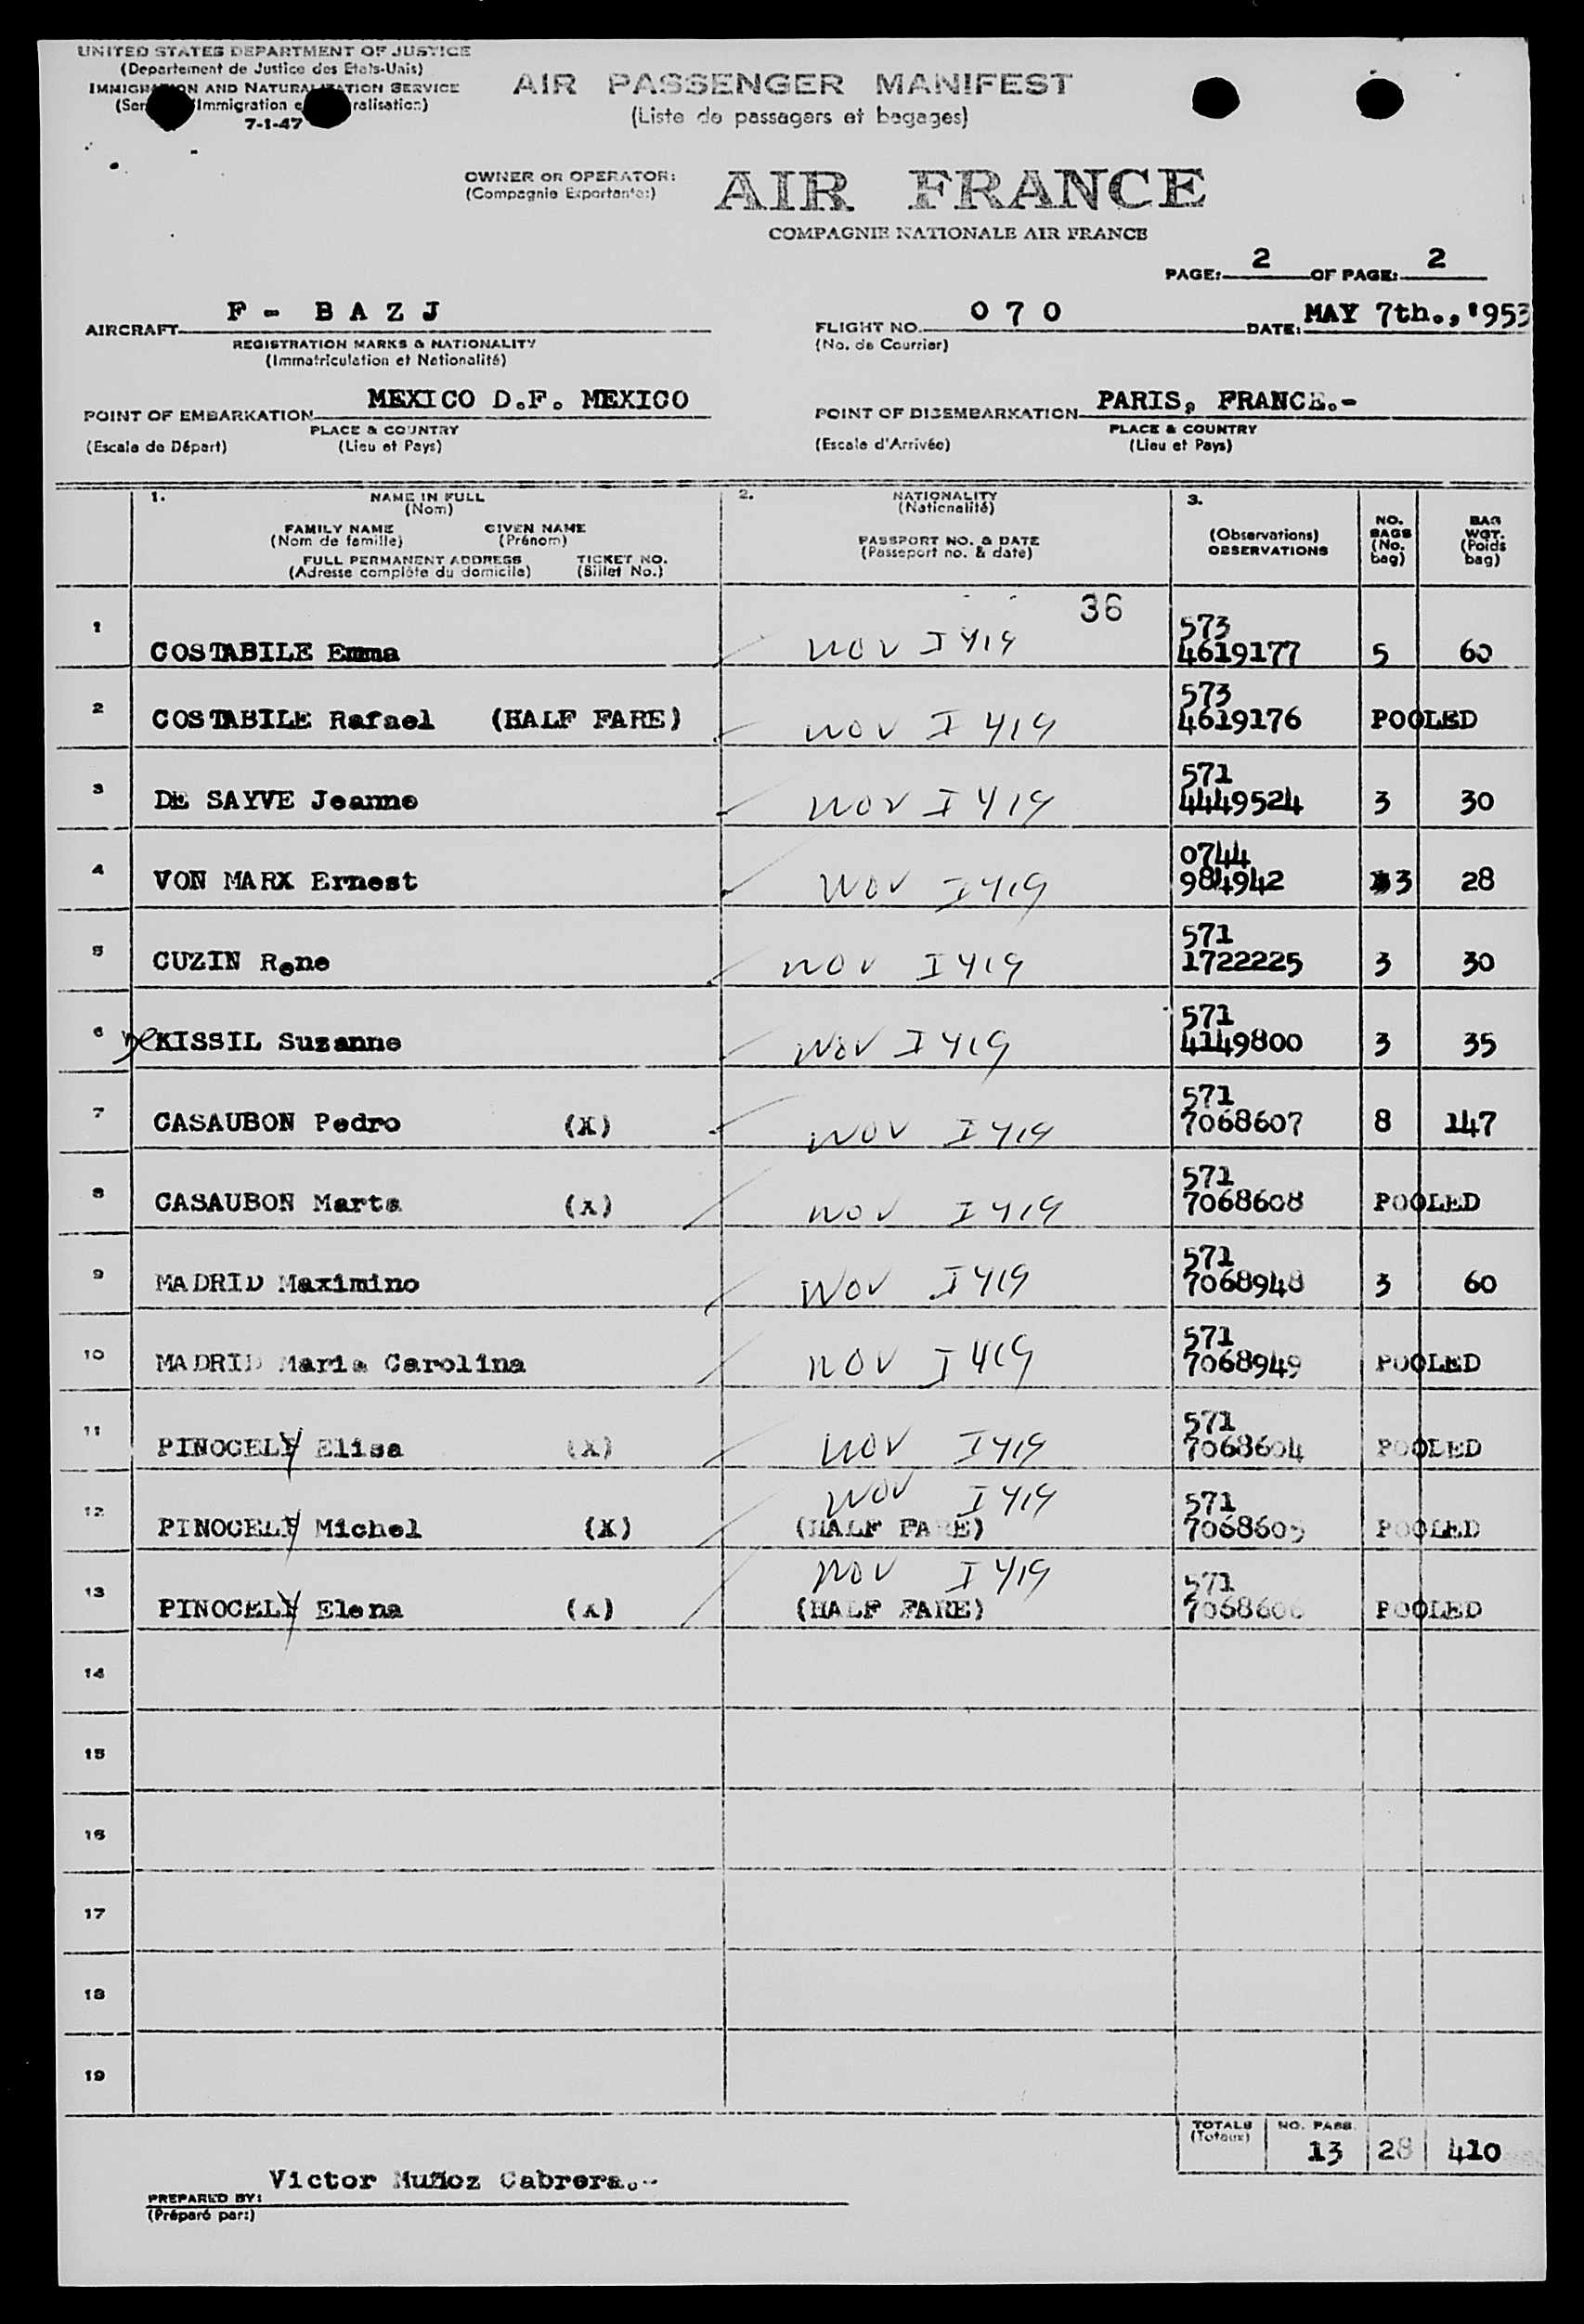 UNITED STATES DEPARTMENT OF JUSTICE
(Departement de Justice des Etats-Unis)
AND NATURALIZATION SERVICE
Immigration
7-1-47
AIR PASSENGER MANIFEST
(Liste de passagers et bagages)
OWNER OR OPERATOR:
(Compagnie Exportante:)
AIR FRANCE
COMPAGNIE NATIONALE AIR FRANCE
PAGE: 2 OF PAGE: 2
AIRCRAFT F - B A Z J
REGISTRATION MARKS & NATIONALITY
(Immatriculation et Nationalité)
FLIGHT NO. 0 7 0
(No. de Courrier)
DATE: MAY 7th., '953
POINT OF EMBARKATION MEXICO D.F. MEXICO
PLACE & COUNTRY
(Escale de Départ) (Lieu et Pays)
POINT OF DISEMBARKATION PARIS, FRANCE.-
PLACE & COUNTRY
(Escale d'Arrivée) (Lieu et Pays)
1. NAME IN FULL
(Nom)
FAMILY NAME GIVEN NAME
(Nom de famille) (Prénom)
FULL PERMANENT ADDRESS TICKET NO.
(Adresse complète du domicile) (Billet No.)
2. NATIONALITY
(Nationalité)
PASSPORT NO. & DATE
(Passeport no. & date)
3.
(Observations)
OBSERVATIONS
NO.
BAGS
(No.
bag)
BAG
WGT.
(Poids
bag)
36
573
1 COSTABILE Emma nov I 419 4619177 5 60
573
2 COSTABILE Rafael (HALF FARE) nov I 419 4619176 POOLED
571
3 DE SAYVE Jeanne nov I 419 4449524 3 30
0744
4 VON MARX Ernest nov I 419 984942 3 28
571
5 CUZIN Rene nov I 419 1722225 3 30
571
6 KISSIL Suzanne nov I 419 4149800 3 35
571
7 CASAUBON Pedro (X) nov I 419 7068607 8 147
571
8 CASAUBON Marta (X) nov I 419 7068608 POOLED
571
9 MADRID Maximino nov I 419 7068948 3 60
571
10 MADRID Maria Carolina nov I 419 7068949 POOLED
571
11 PINOCELY Elisa (X) nov I 419 7068604 POOLED
nov I 419 571
12 PINOCELY Michel (X) (HALF FARE) 7068605 POOLED
nov I 419 571
13 PINOCELY Elena (X) (HALF FARE) 7068606 POOLED
14
15
16
17
18
19
TOTALS NO. PASS.
(Totaux) 13 28 410
PREPARED BY: Victor Muñoz Cabrera.-
(Préparé par:)